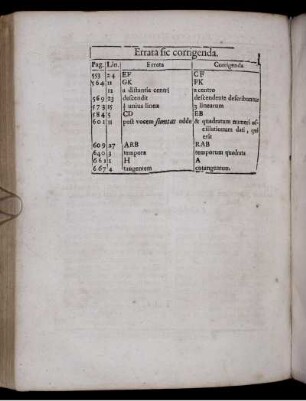 Errata sic corrigenda.
Pag. Lin. Errata Corrigenda
553 24 EF CF
564 11 GK FK
12 a distantia centri a centro
569 23 descendit descendente describuntur
573 15 unius lineæ linearum
584 5 CD EB
601 11 post vocem adde & quadratum numeri
dati, qui
erit
609 27 ARB RAB
640 1 tempora temporum quadrata
661 1 H A
667 4 tangentem cotangentem